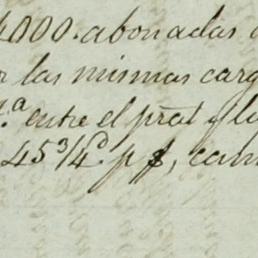 4000. abonadas
las mismas carg
.ª entre el prat y la
45 3/4 d. p $, cam